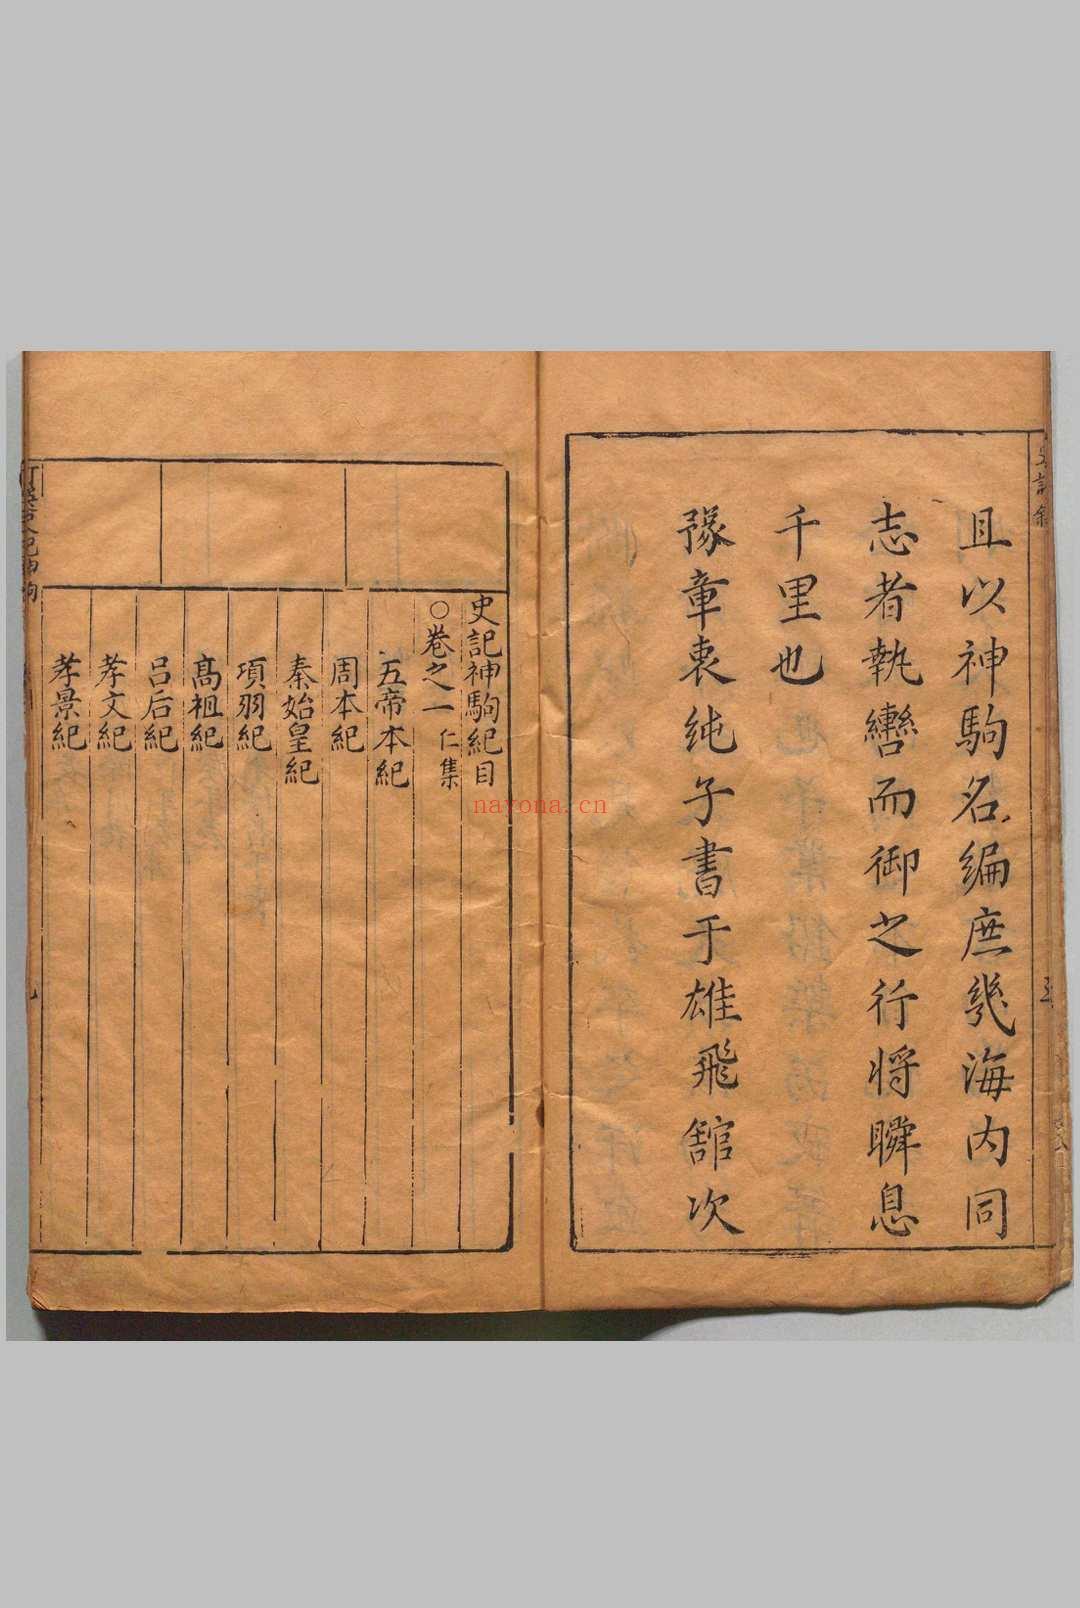 且以神駒名編庶幾海内同
志者執轡而御之行將瞬息
千里也
豫章衷純子書于雄飛舘次
史記神駒紀目
○卷之一 仁集
五帝本紀
周本紀
秦始皇紀
項羽紀
高祖紀
吕后紀
孝文紀
孝景紀
nayona.cn